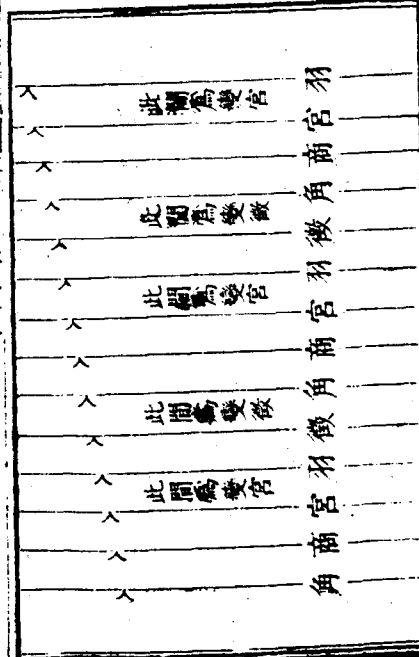 羽
此間爲變宮
宮
商
角
此間爲變徵
徵
羽
此間爲變宮
宮
商
角
此間爲變徵
徵
羽
此間爲變宮
宮
商
角